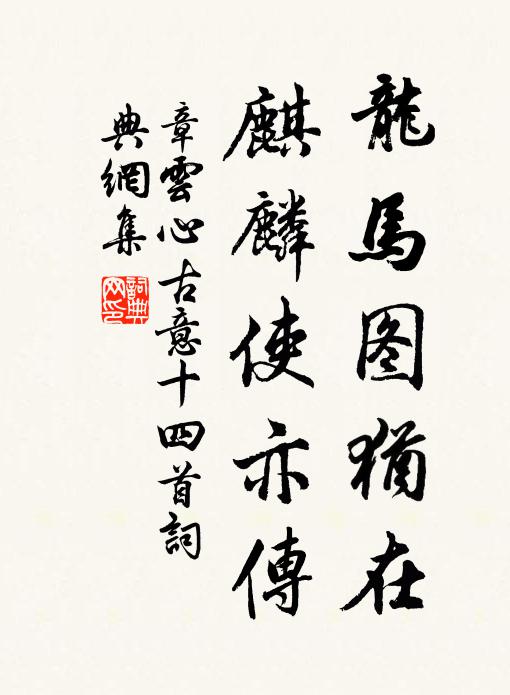 龍馬图猶在
麒麟使亦傳
章雲心古意十四首詞
典網集
詞典
网印